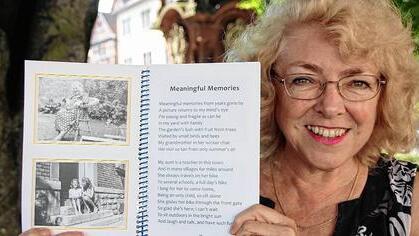 Meaningful Memories
Meaningful memories from years gone by
A picture returns to my mind's eye
I'm young and fragile as can be
In my yard with family
The garden's lush with fruit from trees
Visited by small birds and bees
My grandmother in her wicker chair
Her hair so tan from only summer's air
My aunt is a teacher in this town
And in many villages for miles around
She always travels on her bike
To several schools, a full day's hike
I long for her to come home,
Being an only child, so oft alone
She glides her bike through the front gate
So glad she's here, I can't wait
To sit outdoors in the bright sun
And laugh and talk, and have such